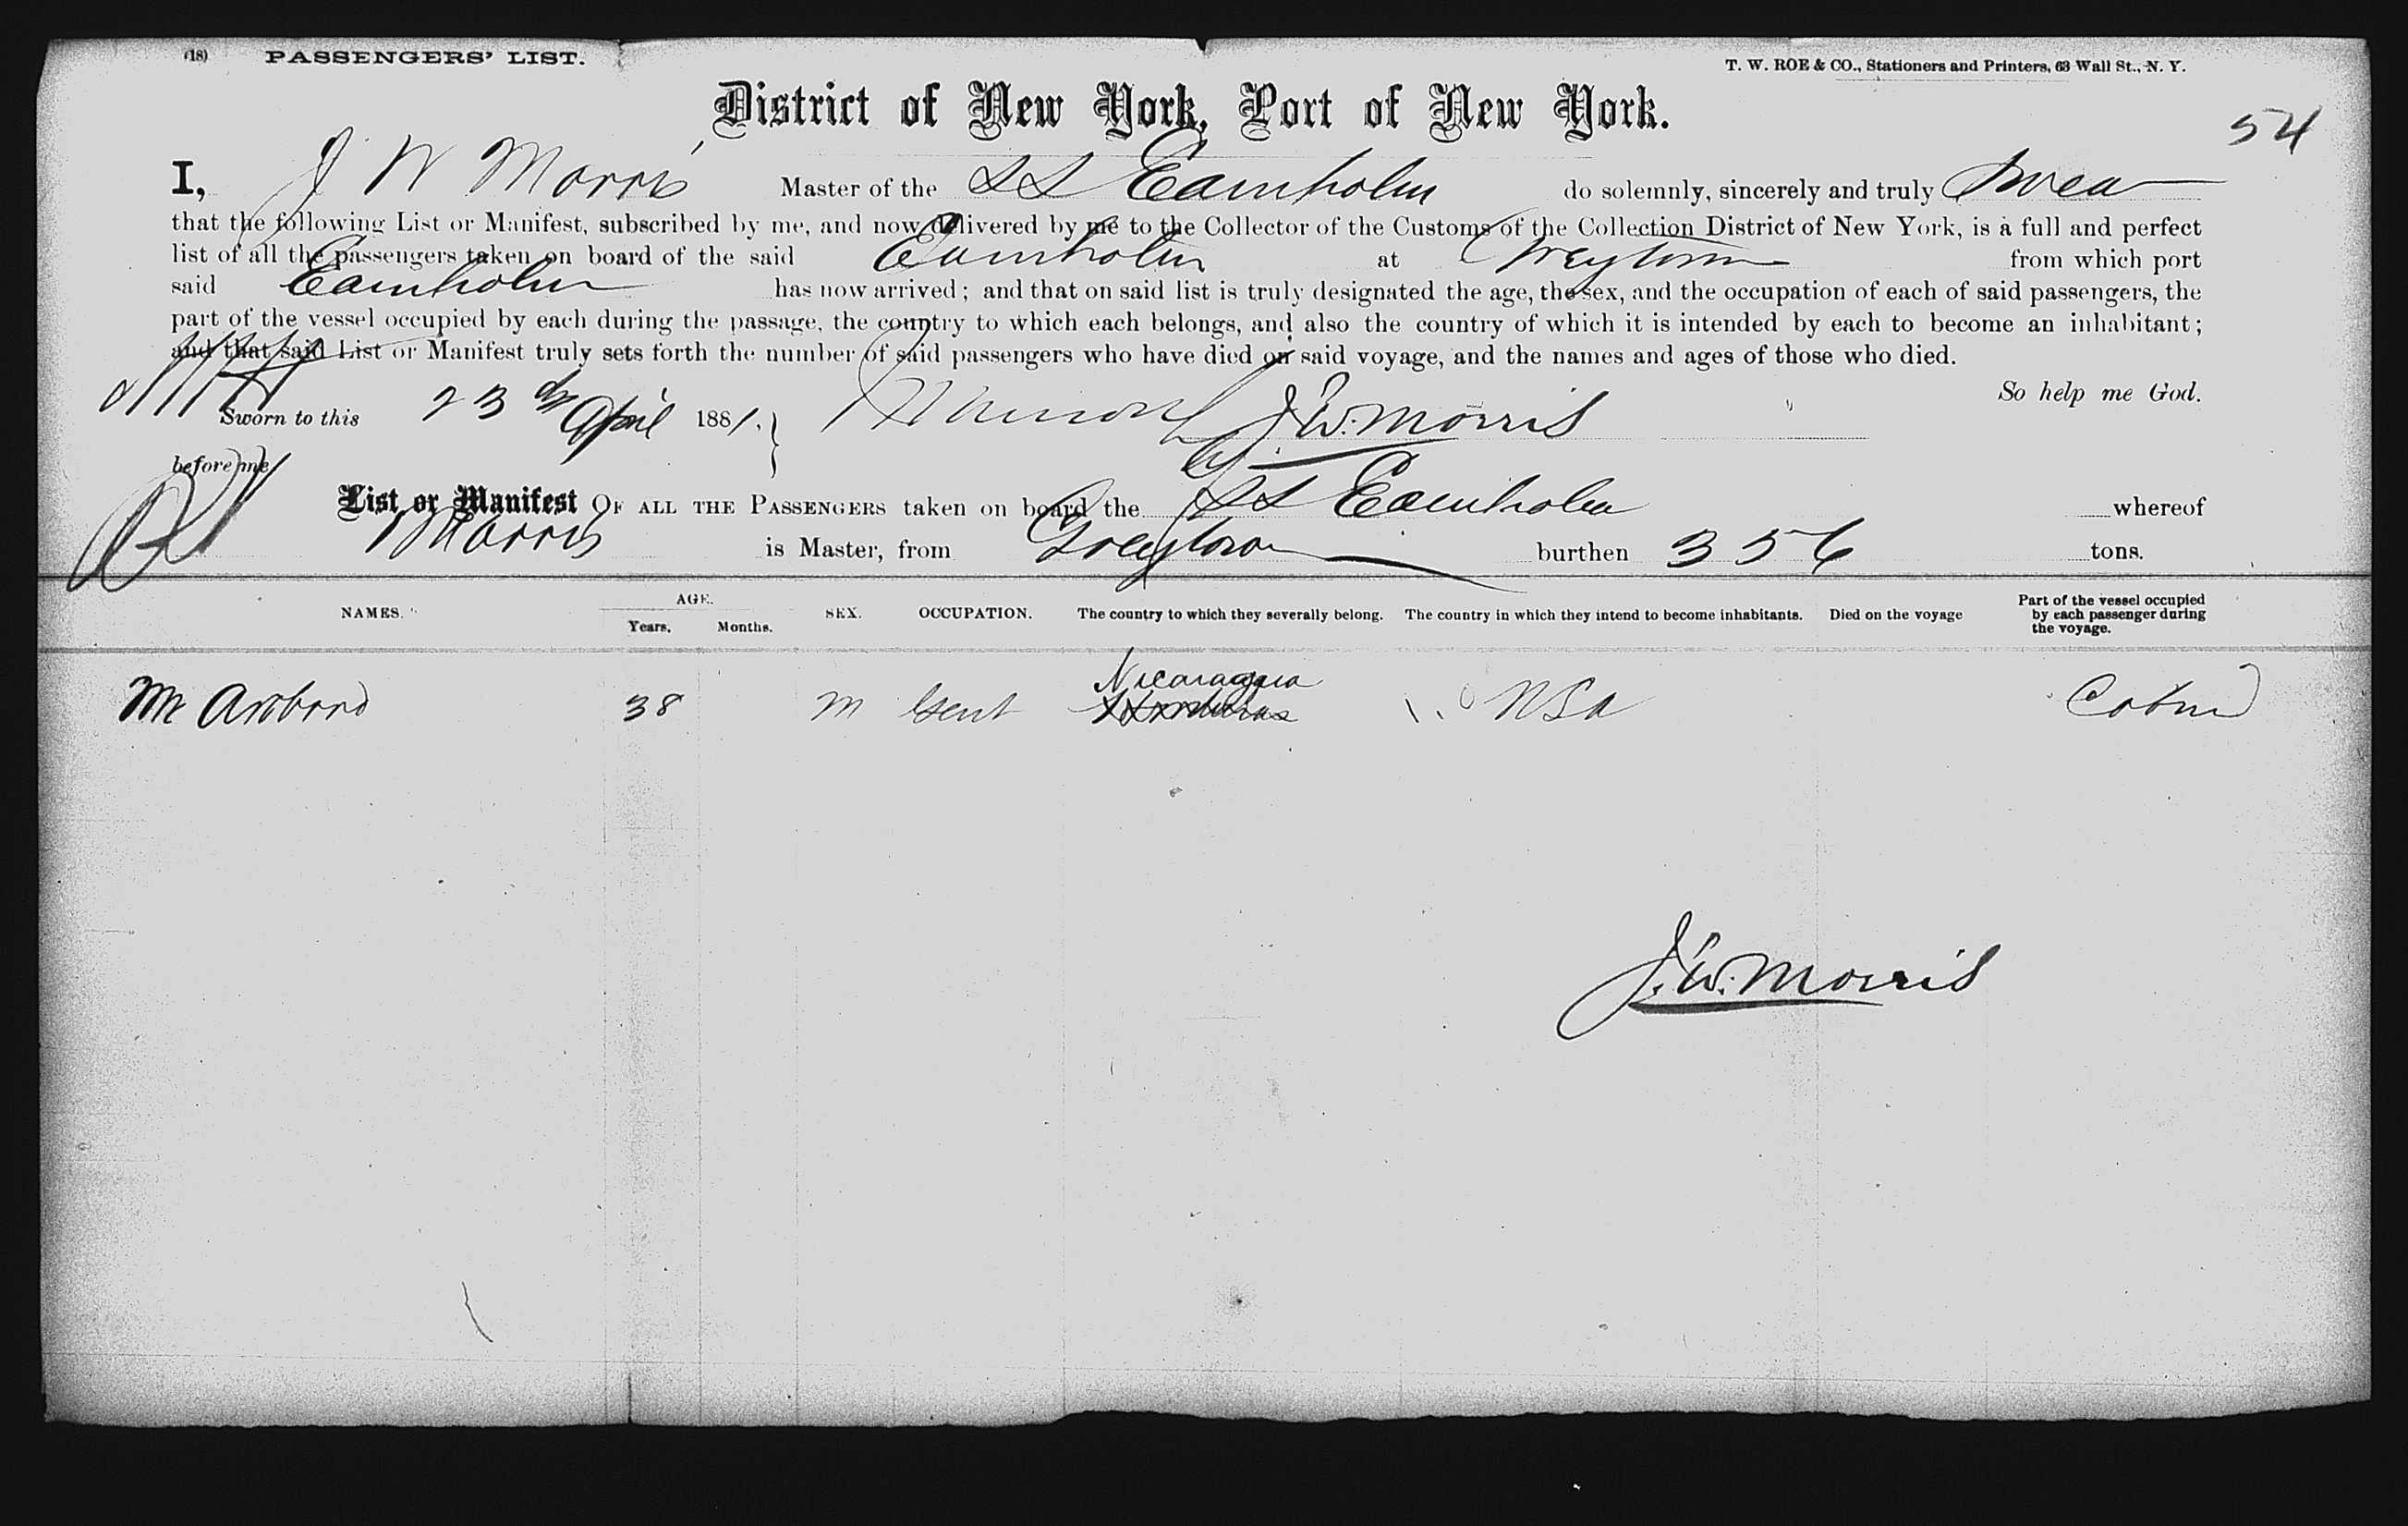 (18) PASSENGERS' LIST.
T. W. ROE & CO., Stationers and Printers, 63 Wall St., N. Y.
District of New York, Port of New York.
54
I, J W Morris Master of the SS Eamholm do solemnly, sincerely and truly Swear
that the following List or Manifest, subscribed by me, and now delivered by me to the Collector of the Customs of the Collection District of New York, is a full and perfect
list of all the passengers taken on board of the said Eamholm at Greytown from which port
said Eamholm has now arrived; and that on said list is truly designated the age, the sex, and the occupation of each of said passengers, the
part of the vessel occupied by each during the passage, the country to which each belongs, and also the country of which it is intended by each to become an inhabitant;
and that said List or Manifest truly sets forth the number of said passengers who have died on said voyage, and the names and ages of those who died.
So help me God.
Sworn to this 23 April 1881. J. W. Morris
before me
List or Manifest OF ALL THE PASSENGERS taken on board the SS Eamholm whereof
Morris is Master, from Greytown burthen 356 tons.
NAMES. AGE. Years. Months. SEX. OCCUPATION. The country to which they severally belong. The country in which they intend to become inhabitants. Died on the voyage Part of the vessel occupied by each passenger during the voyage.
Nicaragua
Mr 38 M Gent Honduras USA Cabin
J. W. Morris